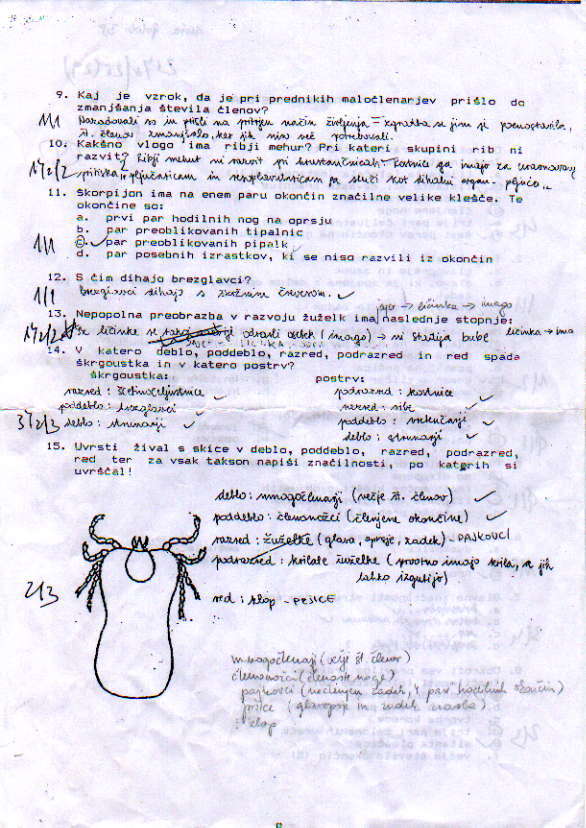 9. Kaj je vzrok, da je pri prednikih maločlenarjev prišlo do
zmanjšanja števila členov?
1/1 Naradovali so in prišli na pritrjen način življenja - zgradba se jim je poenostavila,
št. členov zmanjšalo, ker jih niso več potrebovali.
10. Kakšno vlogo ima ribji mehur? Pri kateri skupini rib ni
razvit? Ribji mehur ni razvit pri hrustančnicah - kostnice ga imajo za uravnavanje
1 1/2/2 pritiska, pljučaricam in resoplavutaricam pa služi kot dihalni organ - pljuča
11. Škorpijon ima na enem paru okončin značilne velike klešče. Te
okončine so:
a. prvi par hodilnih nog na oprsju
b. par preoblikovanih tipalnic
1/1 c. par preoblikovanih pipalk
d. par posebnih izrastkov, ki se niso razvili iz okončin
12. S čim dihajo brezglavci?
1/1 brezglavci dihajo s škržnim črevesom.
jajce → ličinka → imago
13. Nepopolna preobrazba v razvoju žuželk ima naslednje stopnje:
1 1/2/2 Iz ličinke se odrasli osebek (imago) → ni stadija bube ličinka → imago
14. V katero deblo, poddeblo, razred, podrazred in red spada
škrgoustka in v katero postrv?
škrgoustka: postrv:
razred: Ščetinočeljustnice podrazred: kostnice
poddeblo: brezglavci razred: ribe
3 1/2/3 deblo: strunarji poddeblo: vretenčarji
deblo: strunarji
15. Uvrsti žival s skice v deblo, poddeblo, razred, podrazred,
red ter za vsak takson napiši značilnosti, po katerih si
uvrščal!
deblo: mnogočlenarji (večje št. členov)
poddeblo: členonožci (členjene okončine)
razred: žuželke (glava, oprsje, zadek) - PAJKOVCI
podrazred: krilate žuželke (prvotno imajo krila, a jih
lahko izgubijo)
2/3 red: klop - PRŠICE
mnogočlenarji (večje št. členov)
členonožci (členaste noge)
pajkovci (nečlenjen zadek, 4 pari hodilnih okončin)
pršice (glavoprsje in zadek zrasla)
klop